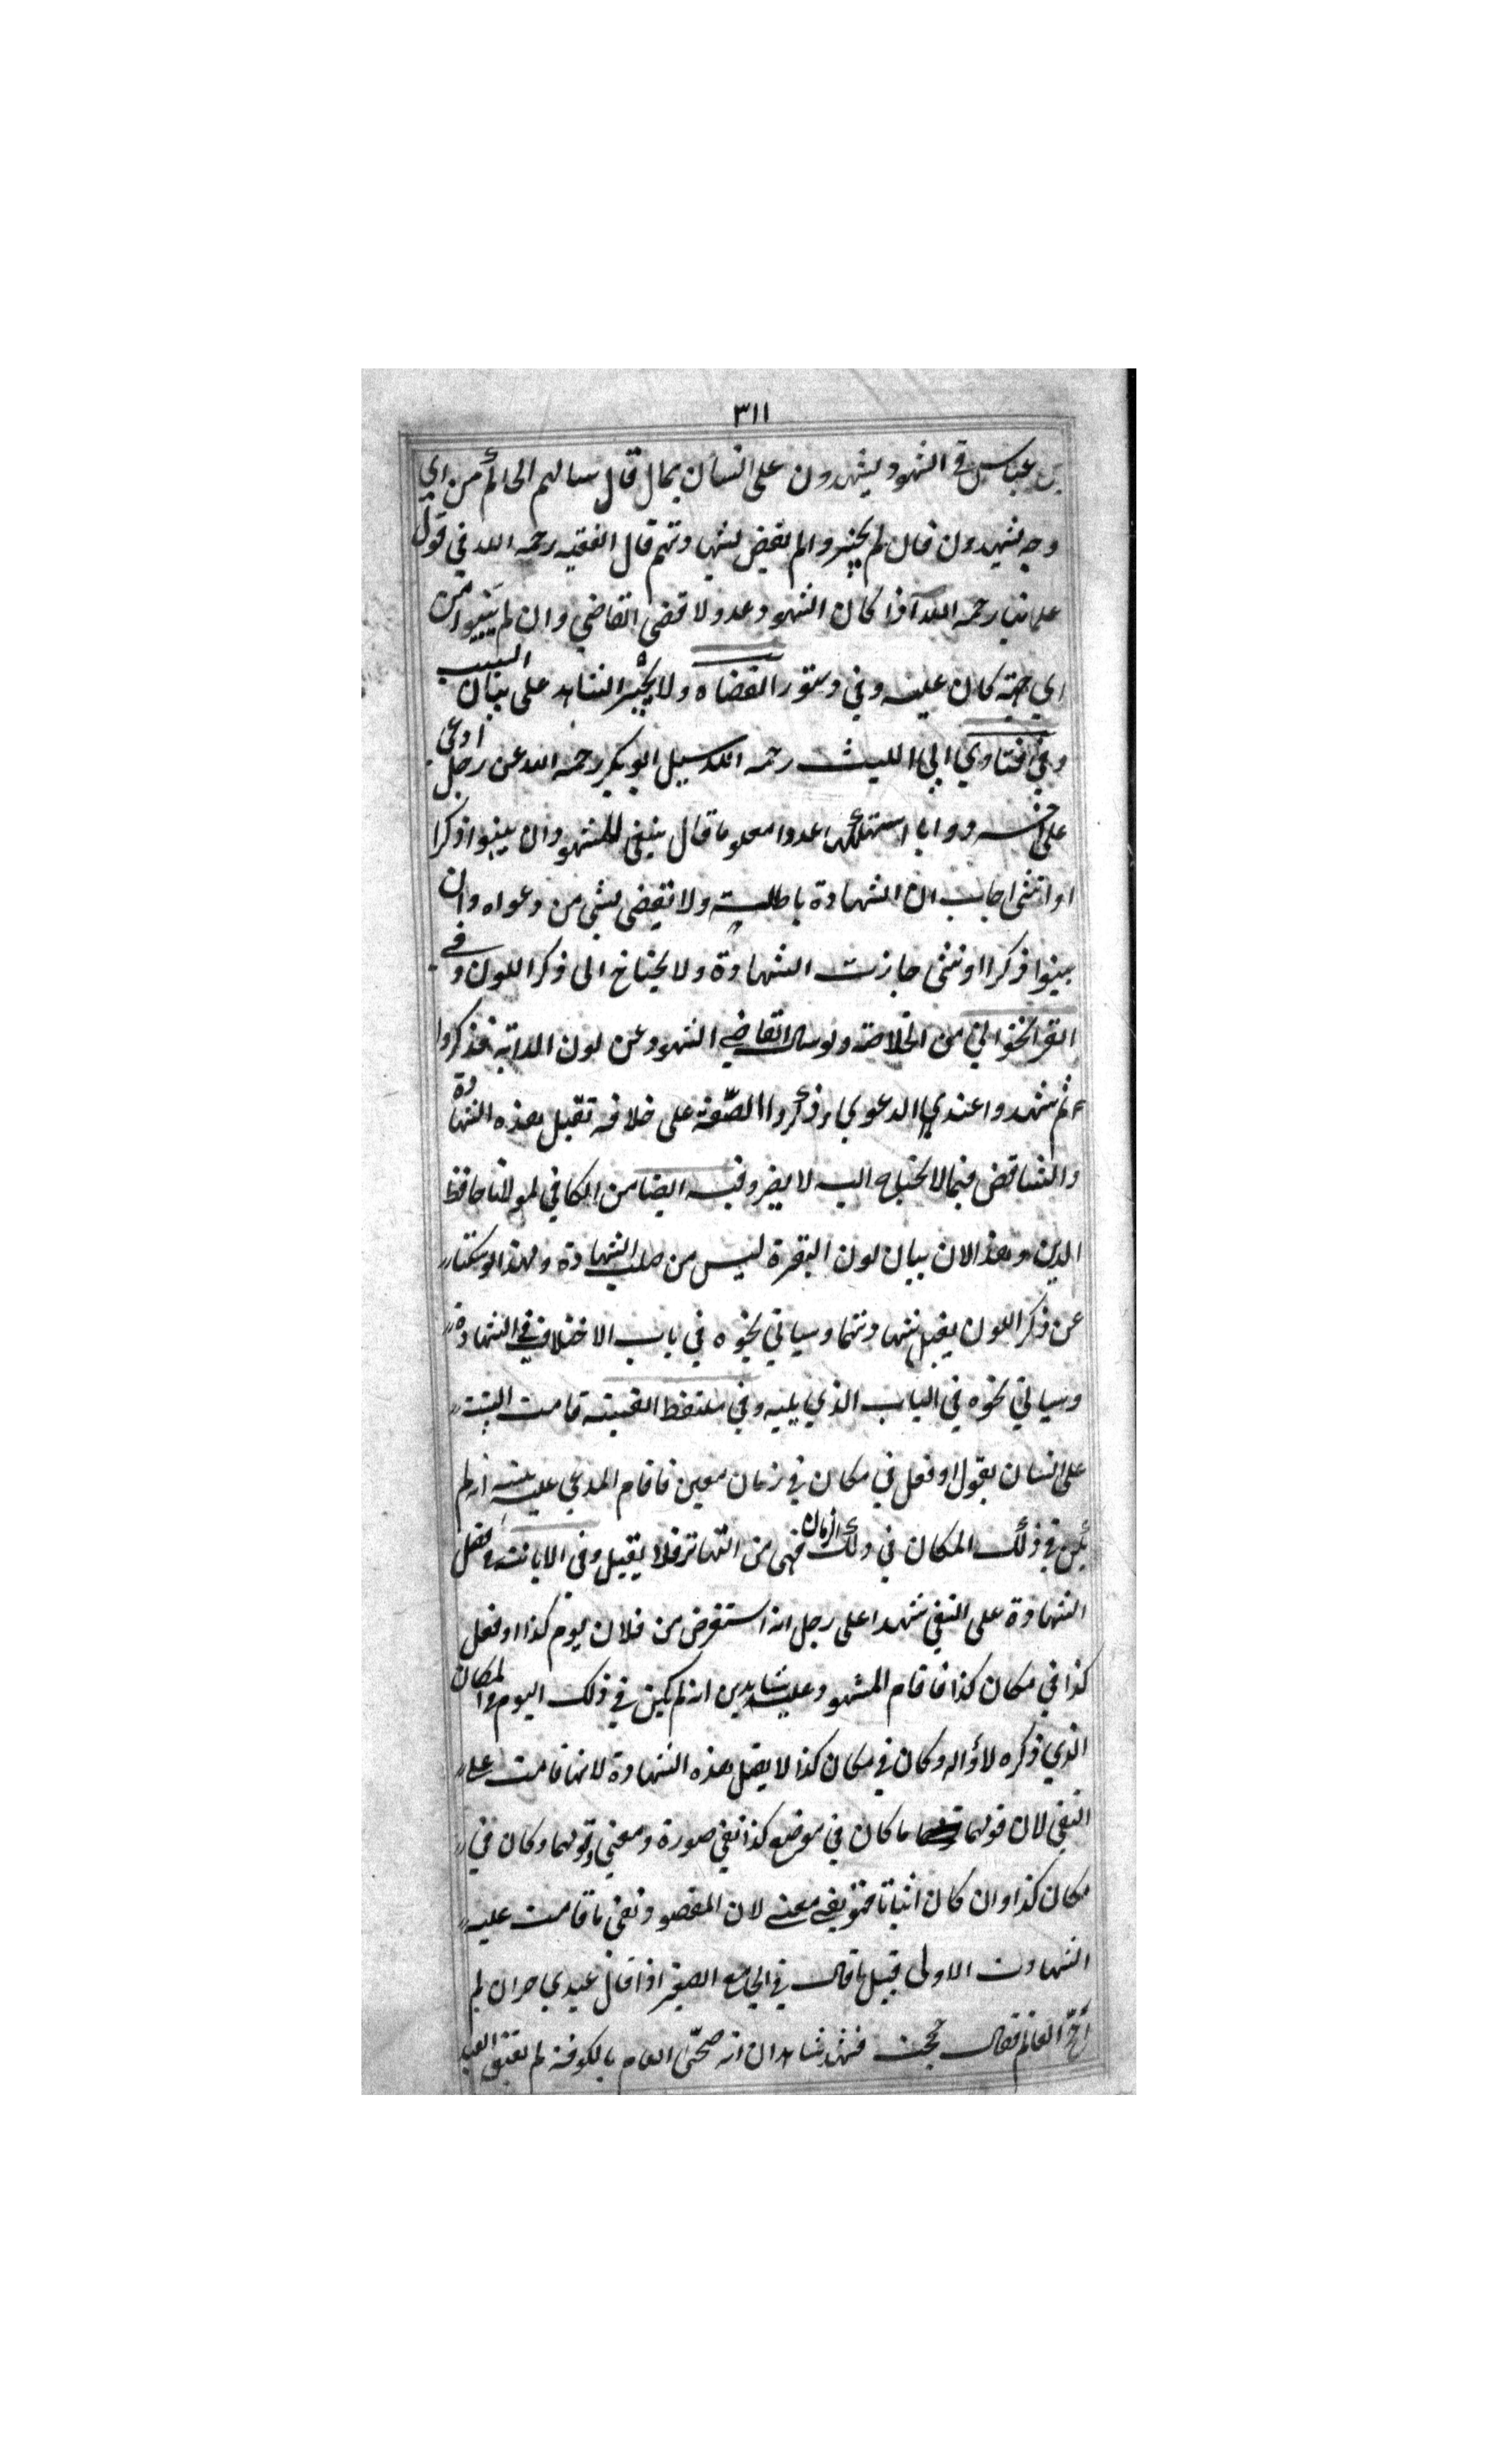 ٣١١
بن عباس في الشهود يشهدون على انسان بمال قال سالهم الحاكم من اي
وجه تشهدون فان لم يخبروا لم يقض بشهادتهم قال الفقيه رحمه الله في قول
علمائنا رحمه الله اذا كان الشهود عدولا قضى القاضي وان لم يبينوا من
اي جهة كان عليه وفي دستور القضاه ولا يجبر الشاهد على بيان السبب
وفي فتاوي ابي الليث رحمه الله سيل ابو بكر رحمه الله عن رجل ادعى
على اخر دوابا استهلكها عددا معلوما قال ينبغي للشهود ان يبينوا ذكرا
او انثى اجاب ان الشهادة باطلة ولا يقضى بشي من دعواه وان
بينوا ذكرا او انثى جازت الشهادة ولا يحتاج الى ذكر اللون وفي
من الخلاصة ولو سال القاضي الشهود عن لون الدابة فذكروا
ثم شهدوا عند الدعوي وذكروا الصفة على خلافه تقبل هذه الشهادة
والتناقض فيما لا يحتاج اليه لا يضر وفيه ايضا من الكافي لمولانا حافظ
الدين وهذا لان بيان لون البقرة ليس من صلب الشهادة ولهذا لو سكتا
عن ذكر اللون يقبل شهادتهما وسياتي نحوه في باب الاختلاف في الشهادة
وسياتي نحوه في الباب الذي يليه وفي ملتقط القنية قامت البينة
على انسان بقول او فعل في مكان في زمان معين فاقام المدعي عليه بينة انه لم
يكن في ذلك المكان في ذلك الزمان فهي من التهاتر فلا يقبل وفي الابانة فصل
الشهادة على النفي شهدا على رجل انه استقرض من فلان يوم كذا او فعل
كذا في مكان كذا فاقام المشهود عليه شاهدين انه لم يكن في ذلك اليوم في المكان
الذي ذكره لاؤاله وكان في مكان كذا لا يقبل هذه الشهادة لانها قامت على
النفي لان قولهما ما كان في موضع كذا نفي صورة ومعنى وقولهما وكان في
مكان كذا وان كان اثباتا فهو نفي معنى لان المقصود نفى ما قامت عليه
الشهادت الاولى قبيل ما قال في الجامع الصغير اذا قال عبدي حر ان لم
احج العام فقال حججت فشهد شاهدان انه ضحى العام بالكوفة لم يعتق العبد